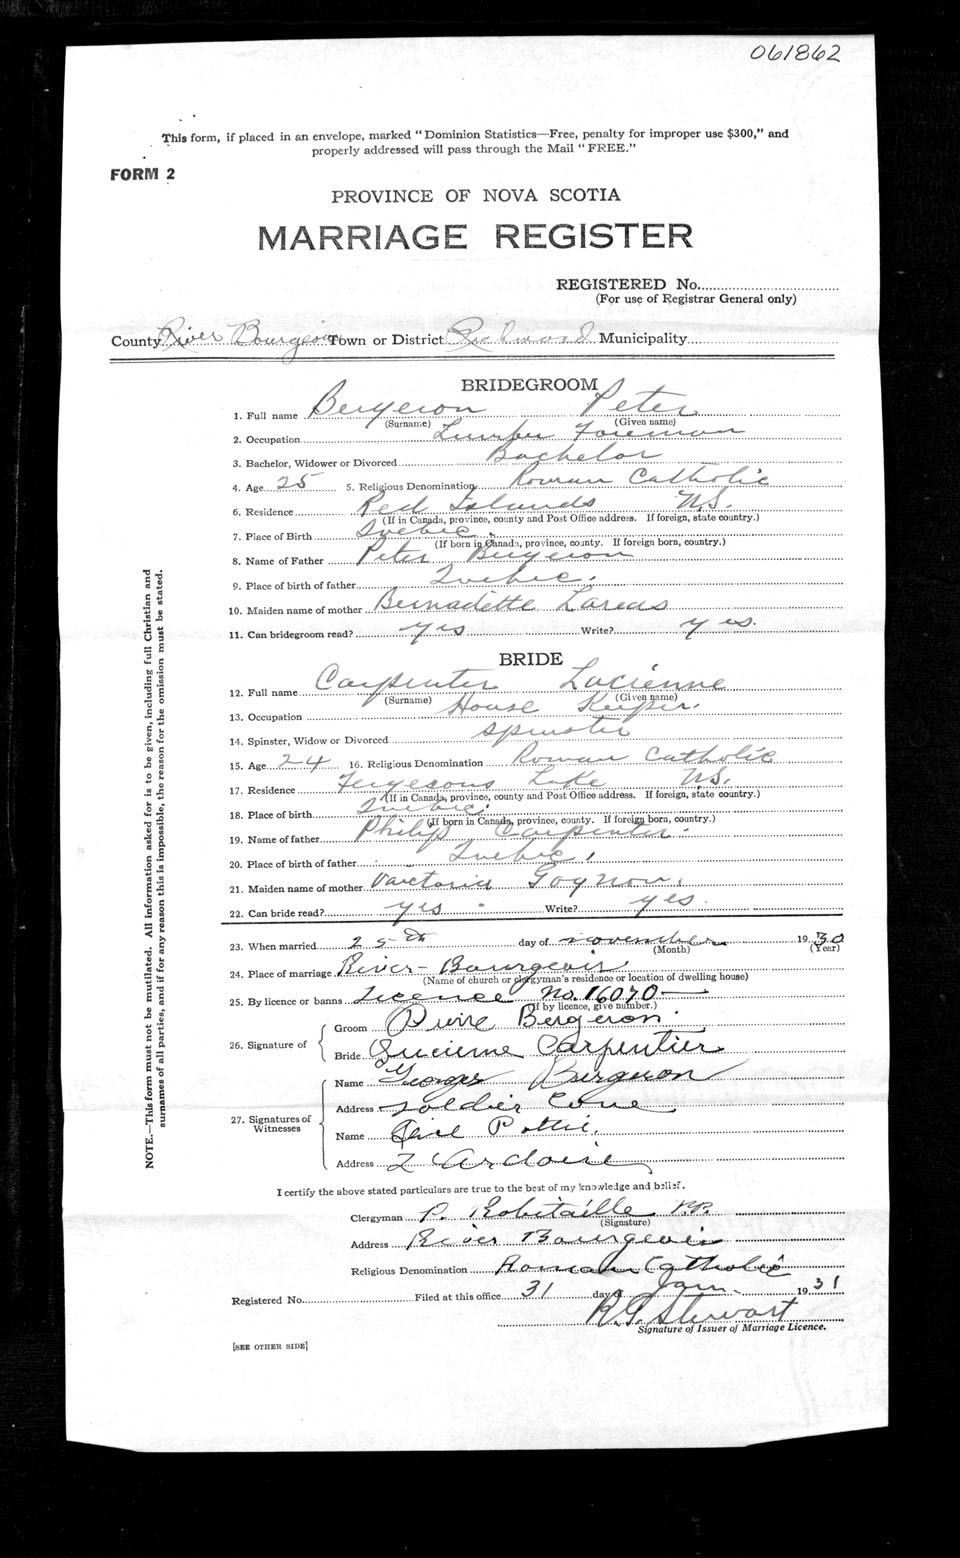 061862
This form, if placed in an envelope, marked "Dominion Statistics—Free, penalty for improper use $300," and
properly addressed will pass through the Mail "FREE."
FORM 2
PROVINCE OF NOVA SCOTIA
MARRIAGE REGISTER
REGISTERED No.
(For use of Registrar General only)
County River Bourgeois Town or District Richmond Municipality
BRIDEGROOM
1. Full name Bergeron Peter
(Surname) (Given name)
2. Occupation Lumber Foreman
3. Bachelor, Widower or Divorced Bachelor
4. Age 25 5. Religious Denomination Roman Catholic
6. Residence Red Islands N.S.
(If in Canada, province, county and Post Office address. If foreign, state country.)
7. Place of Birth Quebec.
(If born in Canada, province, county. If foreign born, country.)
8. Name of Father Peter Bergeron
9. Place of birth of father Quebec.
10. Maiden name of mother Bernadette
11. Can bridegroom read? yes Write? yes.
BRIDE
12. Full name Carpenter Lucienne
(Surname) (Given name)
13. Occupation House Keeper.
14. Spinster, Widow or Divorced spinster
15. Age 24 16. Religious Denomination Roman Catholic
17. Residence Fergesons Lake N.S.
(If in Canada, province, county and Post Office address. If foreign, state country.)
18. Place of birth Quebec.
(If born in Canada, province, county. If foreign born, country.)
19. Name of father Philip Carpenter.
20. Place of birth of father Quebec.
21. Maiden name of mother
22. Can bride read? yes Write? yes.
23. When married 25th day of november 1930
(Month) (Year)
24. Place of marriage River-Bourgeois
(Name of church or clergyman's residence or location of dwelling house)
25. By licence or banns Licence No. 16070
(If by licence, give number.)
26. Signature of
Groom Pierre Bergeron.
Bride Lucienne Carpentier
27. Signatures of Witnesses
Name Georges Bergeron
Address Soldier Cove
Name Pottie.
Address L'Ardoise
I certify the above stated particulars are true to the best of my knowledge and belief.
Clergyman P. Robitaille P.P.
(Signature)
Address River Bourgeois
Religious Denomination Roman Catholic
Registered No. Filed at this office 31 day of Jan. 1931
R.G. Stewart
Signature of Issuer of Marriage Licence.
[SEE OTHER SIDE]
NOTE.—This form must not be mutilated. All information asked for is to be given, including full Christian and
surnames of all parties, and if for any reason this is impossible, the reason for the omission must be stated.